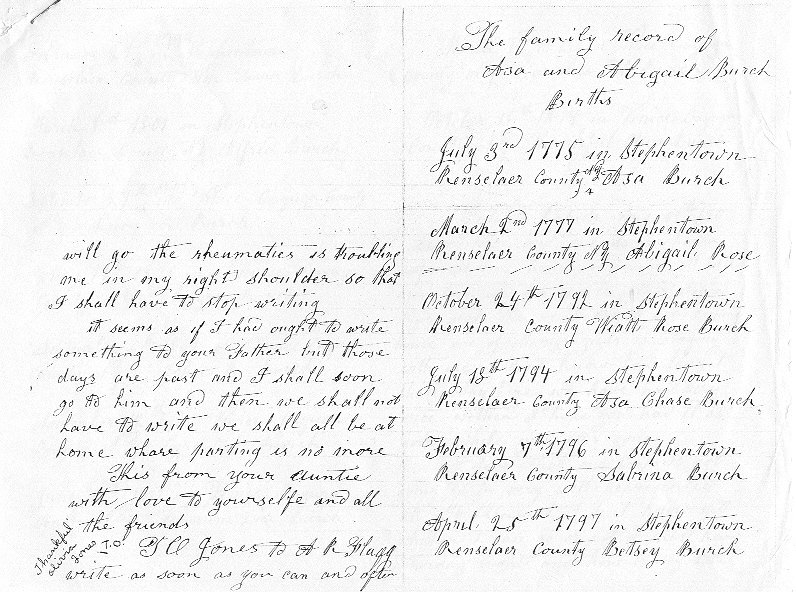 will go the rheumatics is troubling
me in my right shoulder so that
I shall have to stop writing
it seems as if I had ought to write
something to your Father but those
days are past and I shall soon
go to him and then we shall not
have to write we shall all be at
home whare parting is no more
This from your auntie
with love to yourselfe and all
the friends
T O Jones to A R Flagg
write as soon as you can and often
Thankful
Olivia
Jones T.O.
The family record of
Asa and Abigail Burch
Births
July 3rd 1775 in Stephentown
Renselaer County NY Asa Burch
March 2nd 1777 in Stephentown
Renselaer County NY Abigail Rose
October 24th 1792 in Stephentown
Renselaer County Wiatt Rose Burch
July 18th 1794 in Stephentown
Renselaer County Asa Chase Burch
February 7th 1796 in Stephentown
Renselaer County Sabrina Burch
April 25th 1797 in Stephentown
Renselaer County Betsey Burch